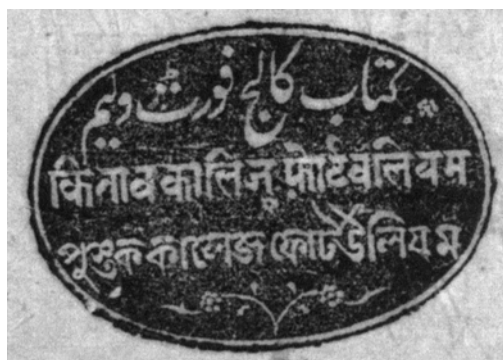 کتاب کالج فورٹ ولیم
किताब कालिज़ फ़ोर्टवलियम
পুস্তক কালেজ ফোর্টউলিয়ম